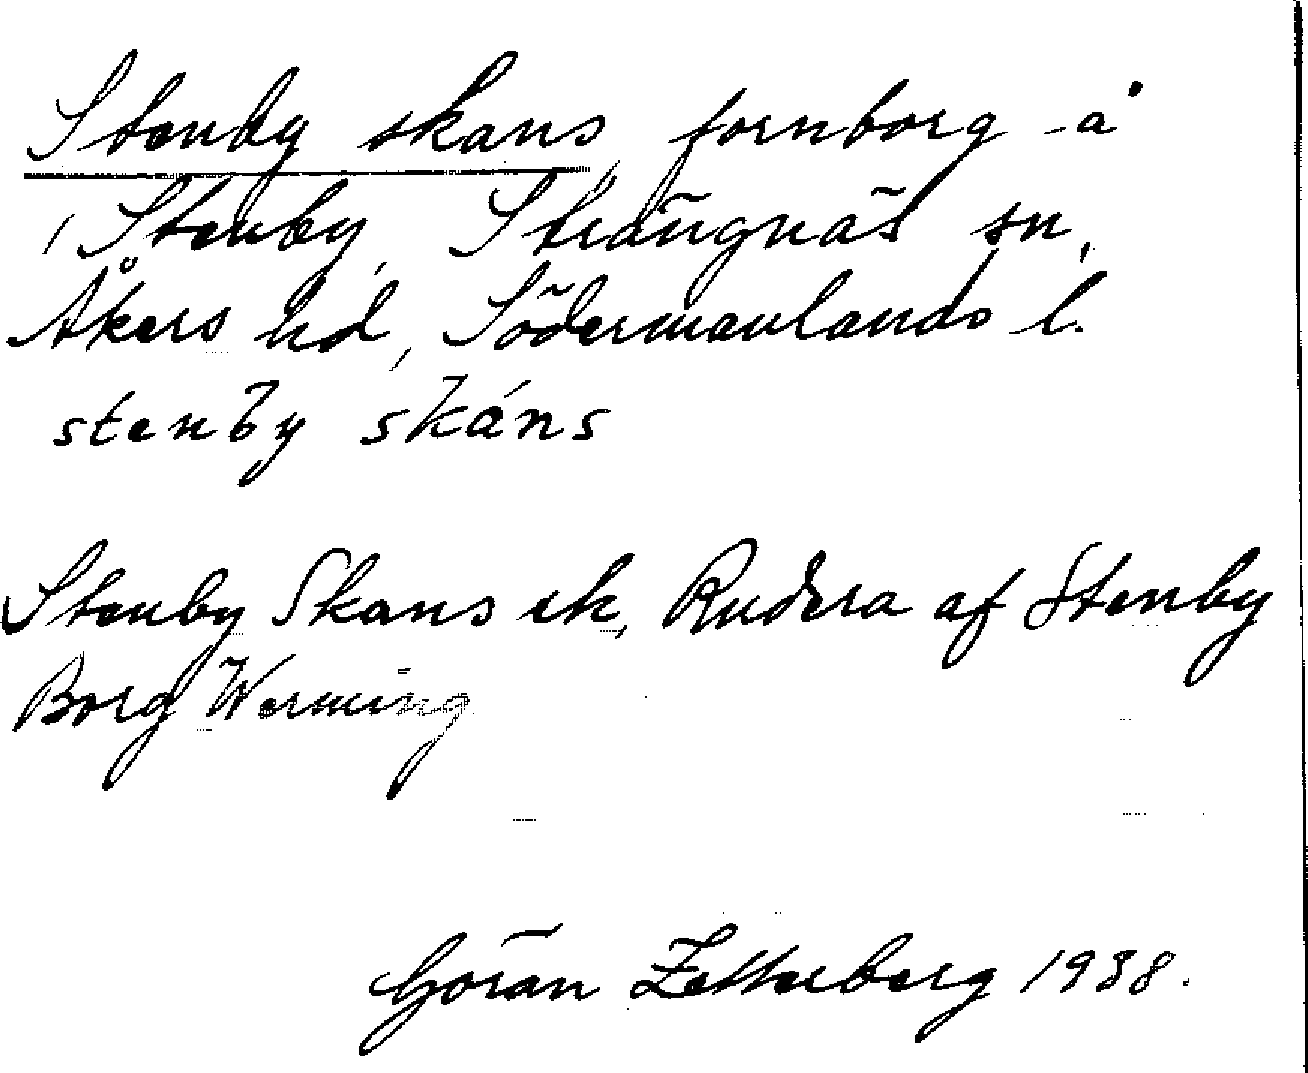 Stenby skans, fornborg å
Stenby, Strängnäs sn,
Åkers hd, Södermanlands l.
stenby skáns
Stenby Skans ek, Rudera af Stenby
Borg Werming
Göran Zetterberg 1938.